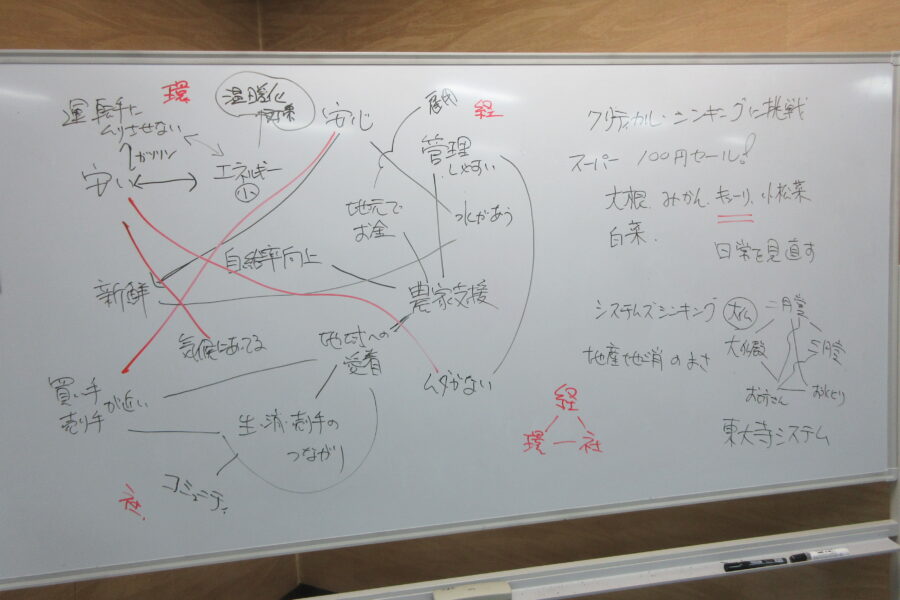 環
運転手に
ムリさせない
ガソリン
安い
温暖化
エネルギー
小
安心
雇用
経
管理
しやすい
地元で
お金
水があう
自給率向上
新鮮
農家支援
気候にあってる
地域への
愛着
ムダがない
買い手
売り手
が近い
生・消・売り手の
つながり
コミュニティ
社
クリティカル・シンキングに挑戦
スーパー 100円セール!
大根、みかん、キューリ、小松菜
白菜、
日常を見直す
システムズシンキング
地産地消のよさ
大仏
二月堂
大仏殿
三月堂
お坊さん
お水とり
東大寺システム
経
環 ― 社